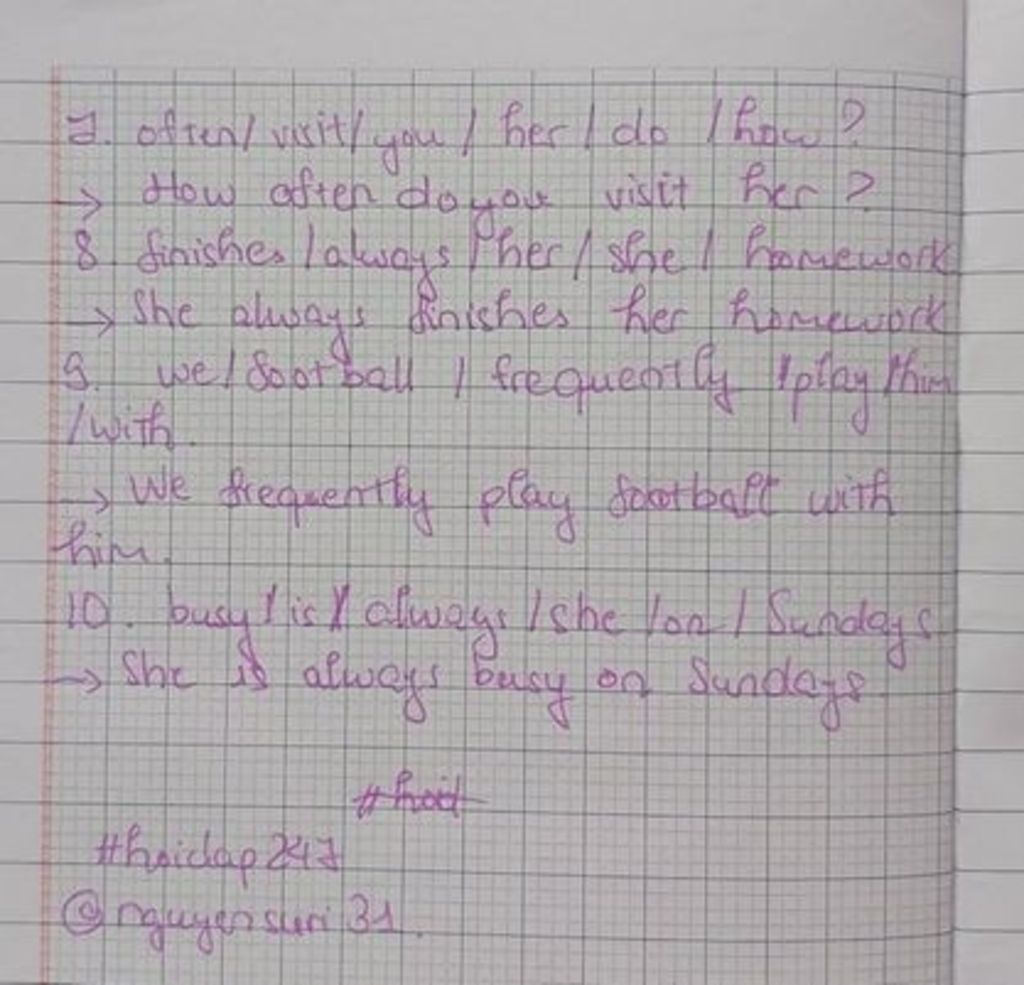 7. often/ visit/ you / her / do / how ?
→ How often do you visit her ?
8 finishes / always / her / she / homework
→ She always finishes her homework
9. we / football / frequently / play / him
/ with.
→ We frequently play football with
him.
10. busy / is / always / she / on / Sundays
→ She is always busy on Sundays
#hoid
#hoidap247
@nguyensuri31.